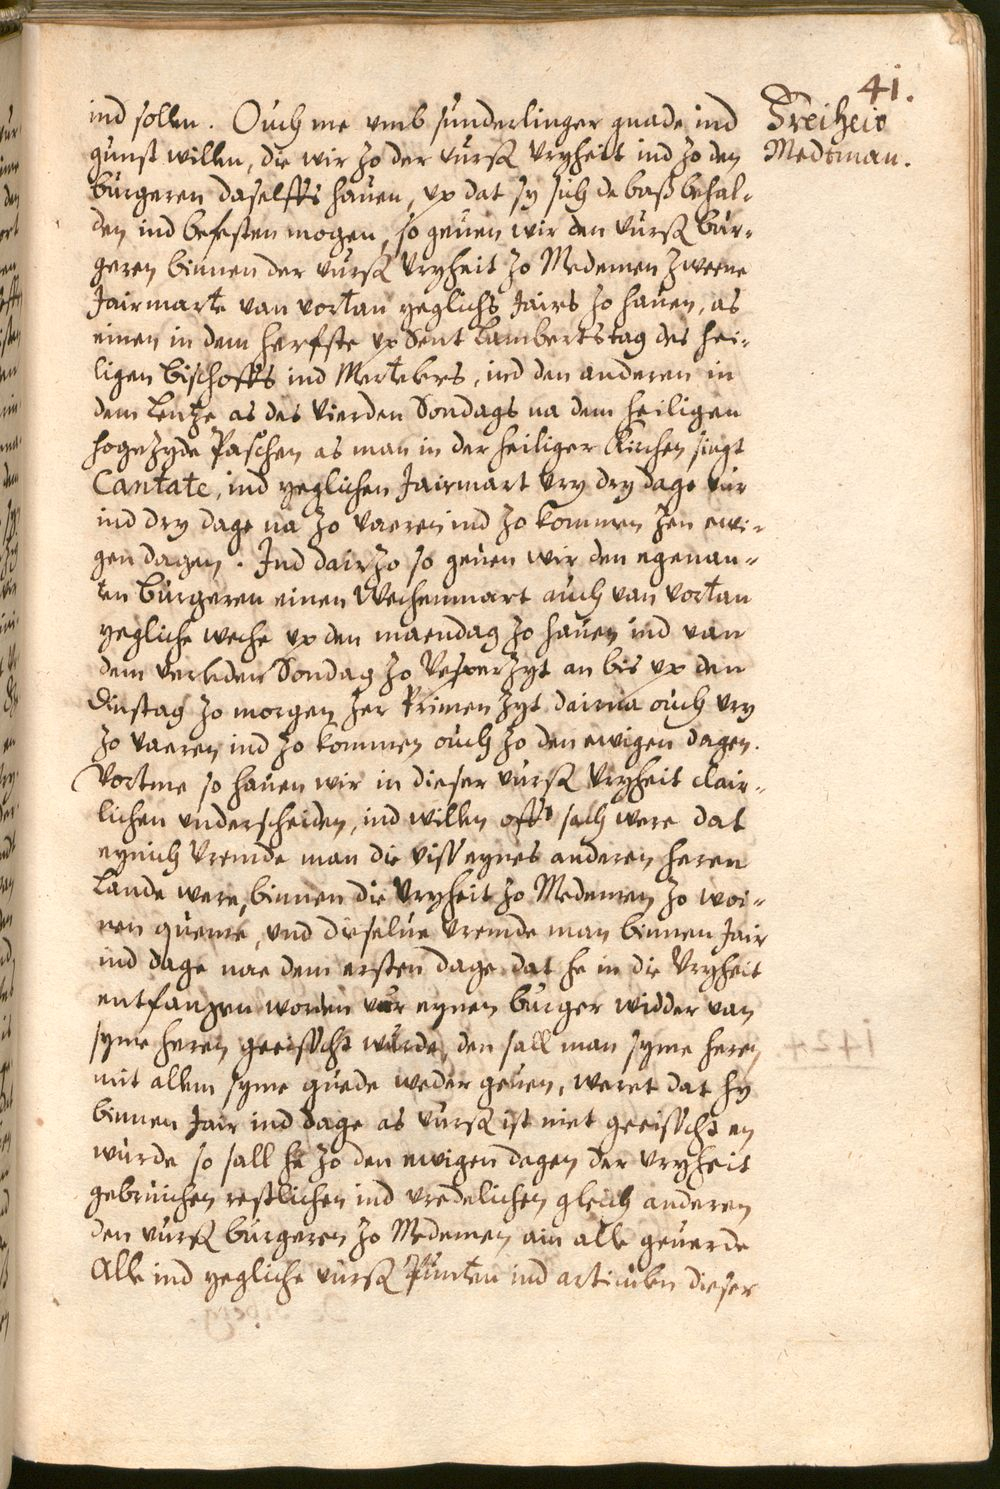 41.
Freiheit
Medtman.
ind sollen. Ouch me vmb sunderlinger gnade ind
gunst willen, die wir zo der vurß vryheit ind zo den
burgeren daselffs hauen, vp dat sy sich de baß behal-
den ind befesten mogen, so geuen wir den vurß bur-
geren binnen der vurß vryheit zo Medemen zweene
Jairmarte van vortan yeglichs Jairs zo hauen, as
einen in dem herfste vp Sent Lambertstag des hei-
ligen Bischoffs ind Mertelers, ind den anderen in
dem Lentze as des vierden Sondags na dem heiligen
hogezyde Paschen as man in der heiliger Kirchen singt
Cantate, ind yeglichen Jairmart vry dry dage vur
ind dry dage na zo vaeren ind zo kommen zen ewi-
gen dagen. Ind dairzo so geuen wir den egenan-
ten Burgeren einen Wechenmart auch van vortan
yegliche weche vp den maendag zo hauen ind van
dem Sondag zo Vesperzyt an bis vp den
Dinstag zo morgen zer Primen zyt dairna ouch vry
zo vaeren ind zo kommen ouch zo den ewigen dagen.
Vortme so hauen wir in dieser vurß vryheit clair-
lichen vnderscheiden, ind willen offt sach were dat
eynich vremde man die viss eynes anderen heren
Lande were, binnen die vryheit zo Medemen zo woi-
nen queme, vnd dieselue vremde man binnen Jair
ind dage nae dem ersten dage dat he in die vryheit
entfangen worden vur eynen burger widder van
syme heren geeisscht wurde, den sall man syme heren
mit allem syme guede weder geuen, weret dat hy
binnen Jair ind dage as vurß ist niet geeisscht en
wurde so sall he zo den ewigen dagen der vryheit
gebruichen restlichen ind vredelichen gleich anderen
den vurß burgeren zo Medemen ain alle geuerde
Alle ind yegliche vurß Puncten ind articulen dieser